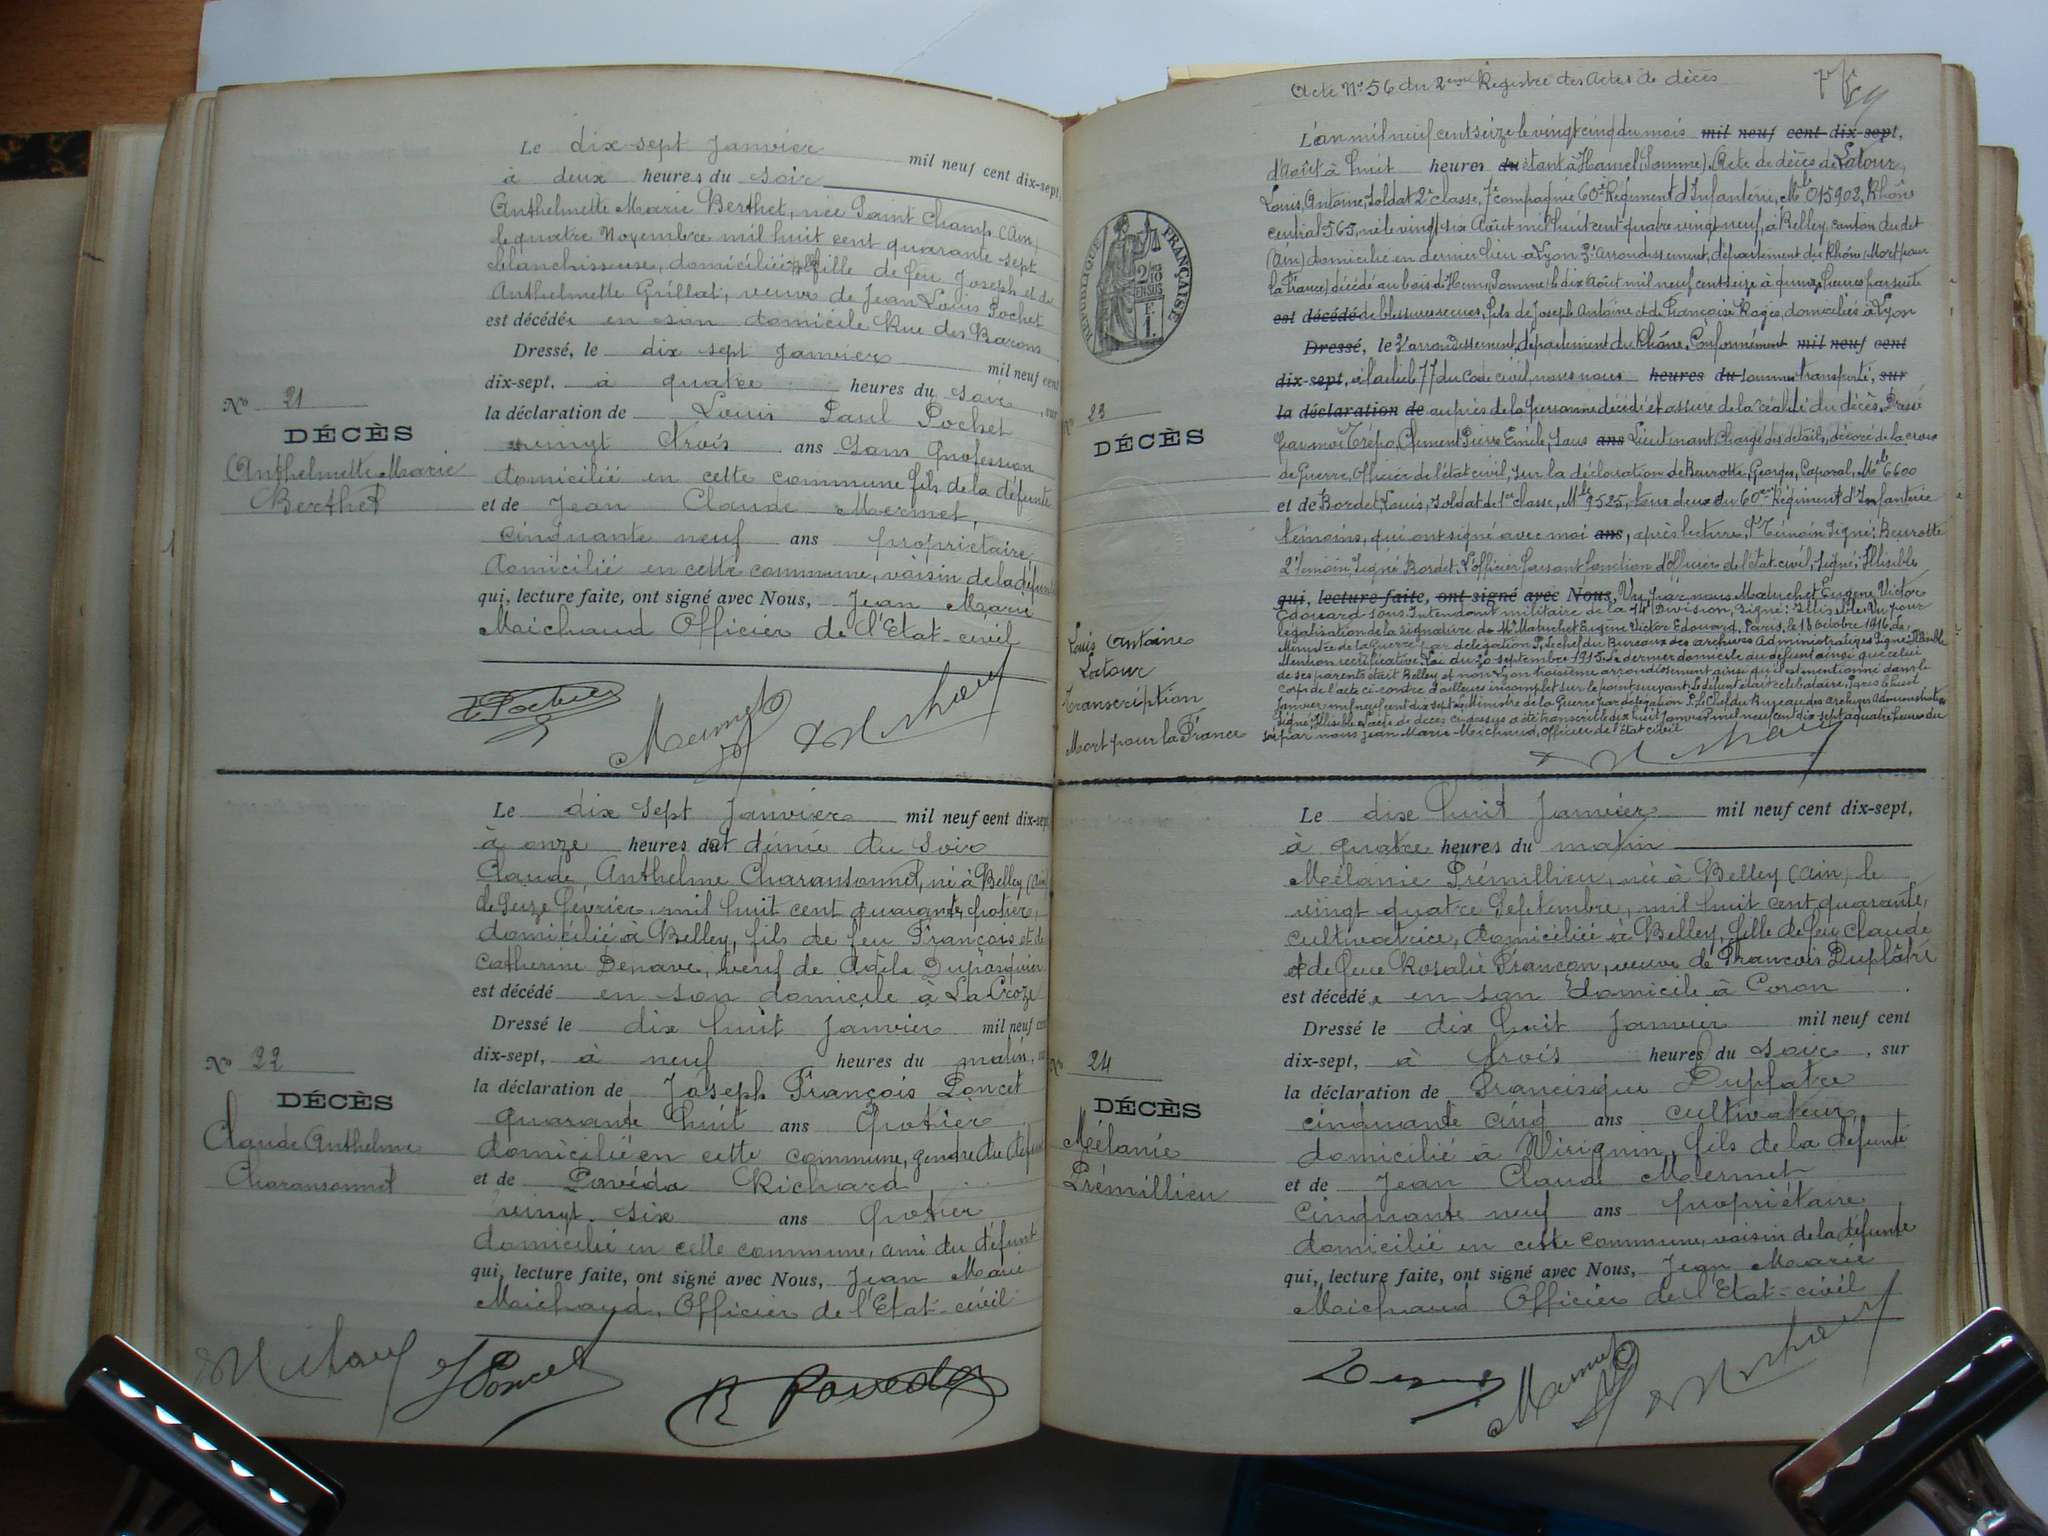 Le dix-sept Janvier mil neuf cent dix-sept,
à deux heures du soir
Anthelmette Marie Berthet, née Saint Champ (Ain)
le quatre Novembre mil huit cent quarante-sept
blanchisseuse, domiciliée fille de feu Joseph et de
Anthelmette Grillat, veuve de Jean Louis Pochet
est décédée en son domicile Rue des Barons
Dressé, le dix sept Janvier mil neuf cent
dix-sept, à quatre heures du soir, sur
la déclaration de Louis Paul Pochet
vingt trois ans Sans Profession
domicilié en cette commune fils de la défunte
et de Jean Claude Mermet,
cinquante neuf ans propriétaire
domicilié en cette commune, voisin de la défunte
qui, lecture faite, ont signé avec Nous, Jean Marie
Michaud Officier de l'Etat-civil
No 21
DÉCÈS
Anthelmette Marie
Berthet
Le dix sept Janvier mil neuf cent dix-sept
à onze heures et demie du soir
Claude Anthelme Charansonnet, né à Belley (Ain)
le seize février, mil huit cent quarante, potier,
domicilié à Belley, fils de feu François et de
Catherine Denave, veuf de Adèle Dupasquier
est décédé en son domicile à La Croze
Dressé le dix huit Janvier mil neuf cent
dix-sept, à neuf heures du matin, sur
la déclaration de Joseph François Poncet
quarante huit ans Potier
domicilié en cette commune, gendre du défunt
et de Povéda Richard
vingt six ans Potier
domicilié en cette commune, ami du défunt
qui, lecture faite, ont signé avec Nous, Jean Marie
Michaud, Officier de l'Etat-civil
No 22
DÉCÈS
Claude Anthelme
Charansonnet
J Poncet
R Poveda
Acte No 56 du 2eme Registre des Actes de décès
L'an mil neuf cent seize le vingt cinq du mois mil neuf cent dix-sept,
d'Août à huit heures du étant à Hamel (Somme). Acte de décès de Latour,
Louis, Antoine, Soldat 2e classe, 7e compagnie 60e Régiment d'Infanterie, Mle 015902, Rhône
central 565, né le vingt six Août mil huit cent quatre vingt neuf, à Belley, canton du dit
(Ain) domicilié en dernier lieu à Lyon 3e Arrondissement, département du Rhône (Mort pour
la France) décédé au bois de Hem, Somme le dix Août mil neuf cent seize à quinze heures par suite
est décédé de blessures reçues, fils de Joseph Antoine et de Françoise Roger, domiciliés à Lyon
Dressé, le 3e arrondissement, département du Rhône, Conformément mil neuf cent
dix-sept, à l'article 77 du Code civil, nous nous heures du sommes transporté, sur
la déclaration de auprès de la personne décédé et assuré de la réalité du décès. Dressé
par moi Trépo, Clément Pierre Emile, Sous ans Lieutenant Chargé des détails, décoré de la croix
de Guerre, Officier de l'état civil, sur la déclaration de Beurotte, Georges, Caporal, Mle 6600
et de Bordet, Louis, Soldat de 1ère classe, Mle 9525, tous deux du 60eme Régiment d'Infanterie
témoins, qui ont signé avec moi ans, après lecture, 1er Témoin Signé: Beurotte
2e Témoin, Signé Bordet. L'officier faisant fonction d'Officier de l'état civil, Signé; Illisible
qui, lecture faite, ont signé avec Nous, Vu par nous Matuchet Eugène, Victor
Edouard sous Intendant militaire de la 14e Division, Signé: Illisible. Vu pour
légalisation de la signature de Mr Matuchet Eugène Victor Edouard. Paris, le 18 octobre 1916. Le
Ministre de la Guerre par délégation P. Le chef du Bureau des archives Administratives Signé: Illisible
Mention rectificative. Loi du 30 septembre 1915. Le dernier domicile du défunt ainsi que celui
de ses parents était Belley et non Lyon troisième arrondissement ainsi qu'il est mentionné dans le
corps de l'acte ci-contre d'ailleurs incomplet sur le point suivant: Le défunt était célibataire. Paris le huit
Janvier mil neuf cent dix sept. Le Ministre de la Guerre par délégation P. Le Chef du Bureau des Archives Administratives
Signé: Illisible. L'acte de décès ci-dessus a été transcrit le dix huit Janvier mil neuf cent dix sept à quatre heures du
soir par nous Jean Marie Michaud, officier de l'Etat civil
RÉPUBLIQUE FRANÇAISE
2/10 EN SUS
1 F.
No 23
DÉCÈS
Louis Antoine
Latour
Transcription
Mort pour la France
Le dix huit Janvier mil neuf cent dix-sept,
à quatre heures du matin
Mélanie Prémillieu, née à Belley (Ain) le
vingt quatre Septembre, mil huit cent quarante,
cultivatrice, domiciliée à Belley, fille de feu Claude
et de feue Rosalie Françon, veuve de François Duplâtre
est décédée en son domicile à Coron
Dressé le dix huit Janvier mil neuf cent
dix-sept, à trois heures du soir, sur
la déclaration de Francisque Duplatre
cinquante cinq ans cultivateur
domicilié à Virignin, fils de la défunte
et de Jean Claude Mermet
cinquante neuf ans propriétaire
domicilié en cette commune, voisin de la défunte
qui, lecture faite, ont signé avec Nous, Jean Marie
Michaud Officier de l'Etat-civil
No 24
DÉCÈS
Mélanie
Prémillieu